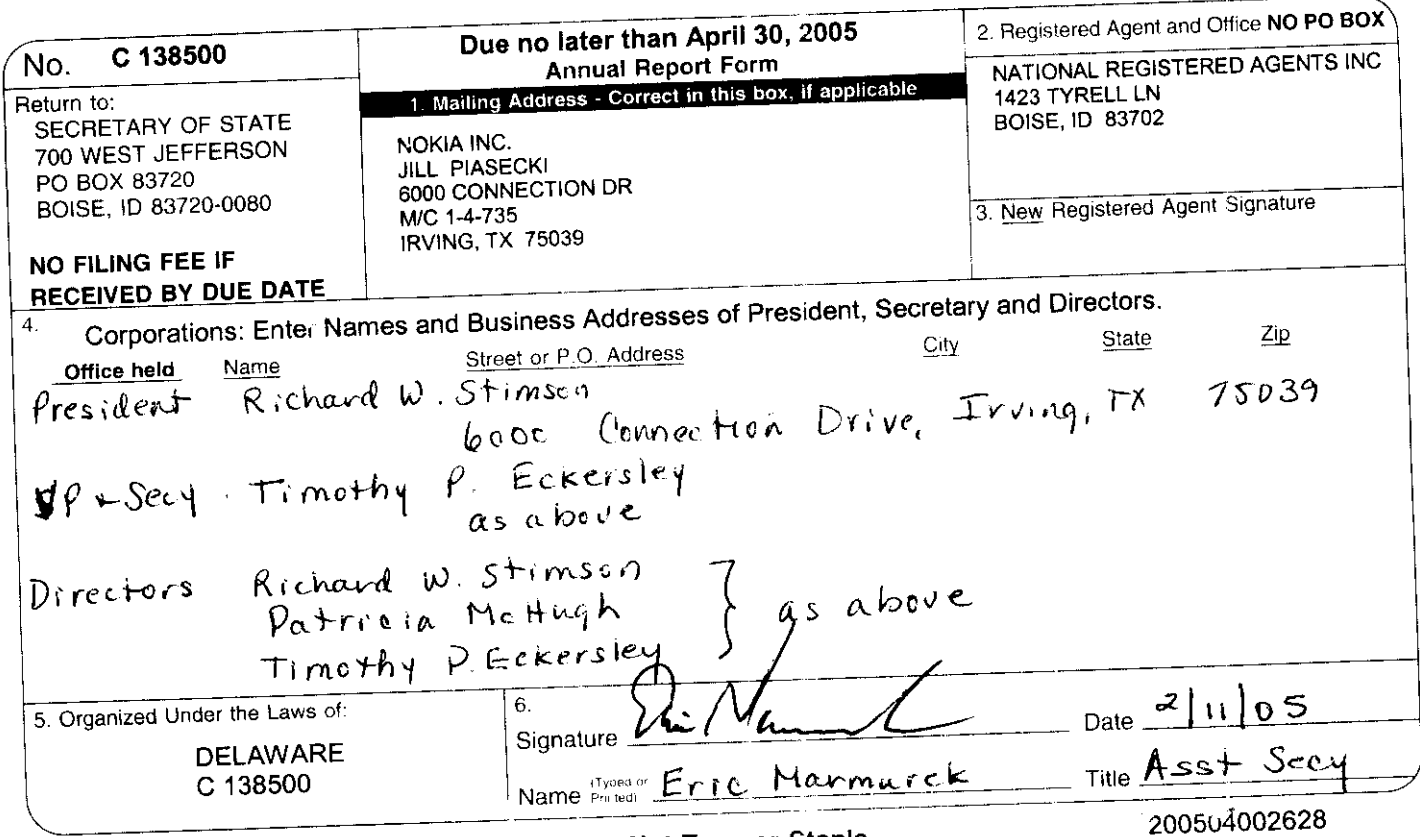 No. C 138500
Return to:
SECRETARY OF STATE
700 WEST JEFFERSON
PO BOX 83720
BOISE, ID 83720-0080
NO FILING FEE IF
RECEIVED BY DUE DATE
Due no later than April 30, 2005
Annual Report Form
1. Mailing Address - Correct in this box, if applicable
NOKIA INC.
JILL PIASECKI
6000 CONNECTION DR
M/C 1-4-735
IRVING, TX 75039
2. Registered Agent and Office NO PO BOX
NATIONAL REGISTERED AGENTS INC
1423 TYRELL LN
BOISE, ID 83702
3. New Registered Agent Signature
4. Corporations: Enter Names and Business Addresses of President, Secretary and Directors.
Office held Name Street or P.O. Address City State Zip
President Richard W. Stimson
6000 Connection Drive, Irving, TX 75039
VP + Secy Timothy P. Eckersley
as above
Directors Richard W. Stimson
Patricia McHugh } as above
Timothy P. Eckersley
5. Organized Under the Laws of:
DELAWARE
C 138500
6.
Signature
Date 2/11/05
Name (Typed or Printed) Eric Marmurek
Title Asst Secy
200504002628